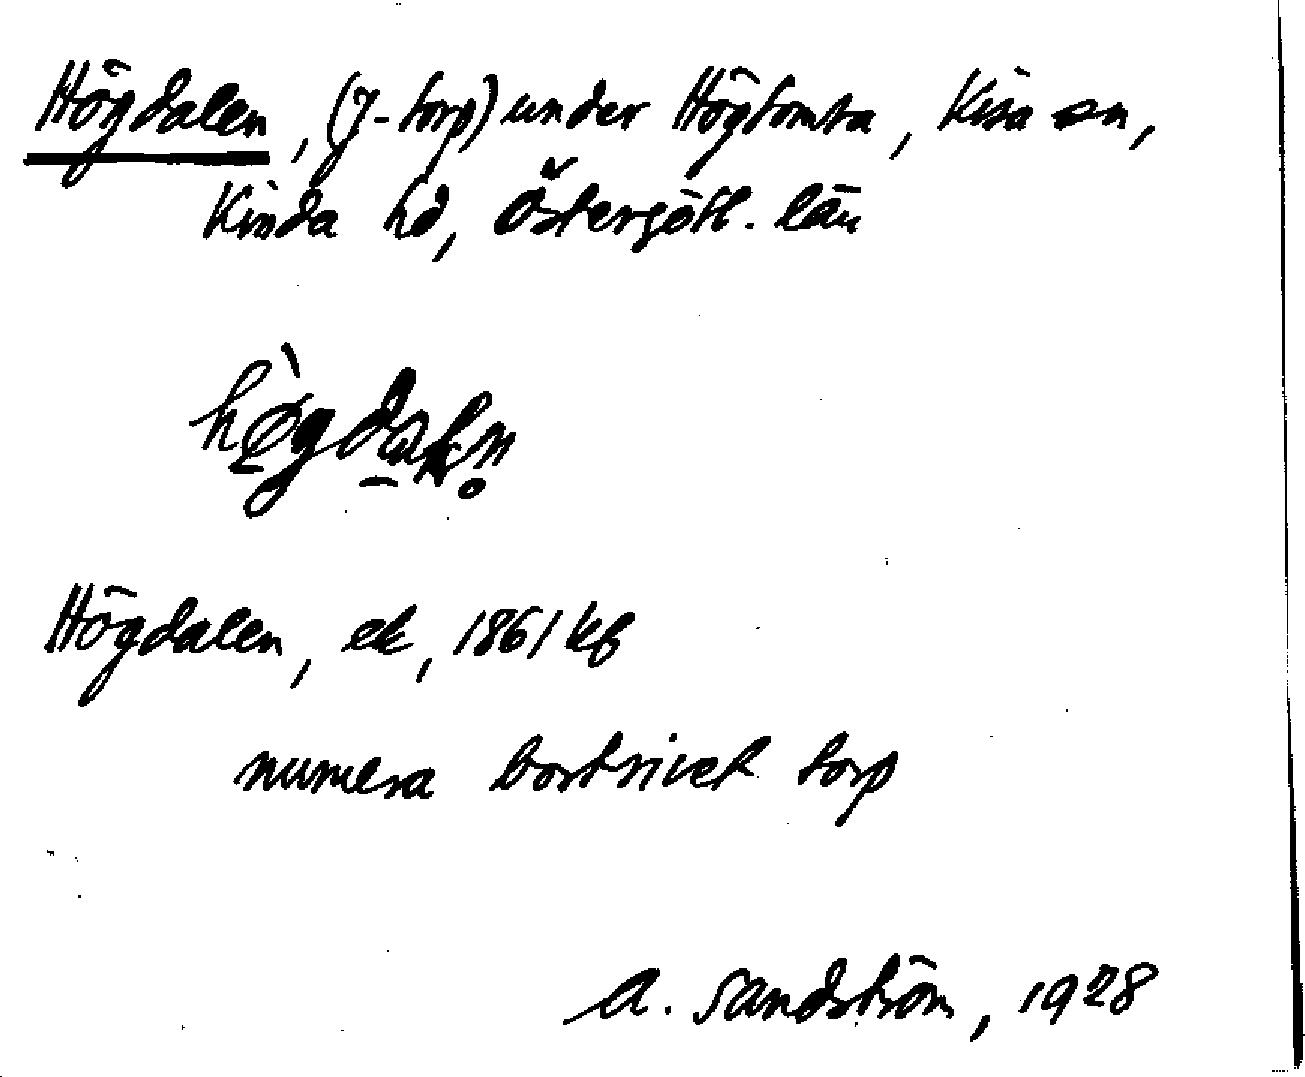 Högdalen, (f-torp) under Högtomta, Kisa sn,
Kinda hd, Östergötl. län
hògdaln̥
Högdalen, ek, 1861 kb
numera bortrivet torp
A. Sandström, 1928